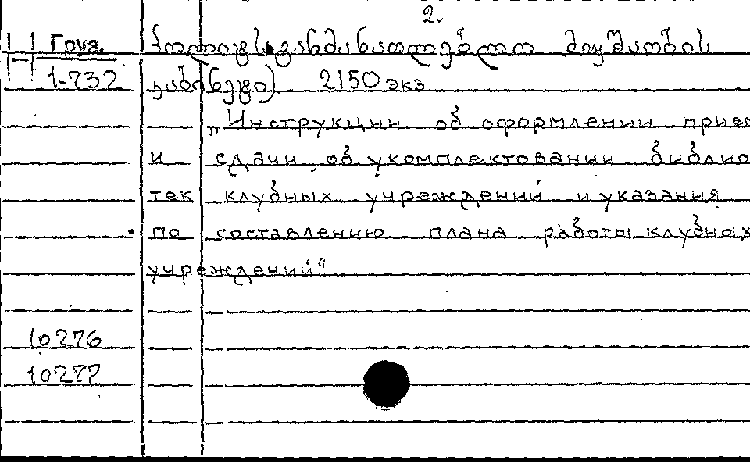 2.
Груз. პოლიტსაგანმანათლებლო მუშაობის
1-732 კაბინეტი) 2150 экз
„Инструкции об оформлении прие
и сдачи, об укомплектовании библио
тек клубных учреждений и указания
по составлению плана работы клубных
учреждений"
10276
10277